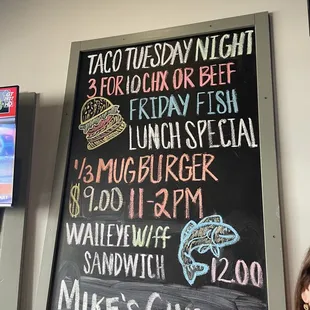 TACO TUESDAY NIGHT
3 FOR 10 CHX OR BEEF
FRIDAY FISH
LUNCH SPECIAL
1/3 MUGBURGER
$9.00 11-2PM
WALLEYE W/FF
SANDWICH 12.00
MIKE'S